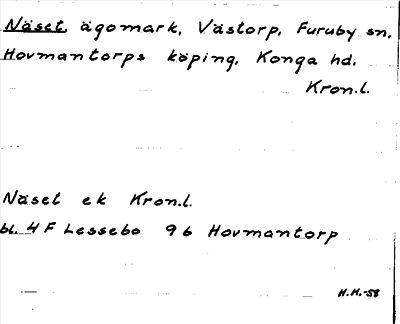 Näset, ägomark, Västorp, Furuby sn,
Hovmantorps köping, Konga hd.
Kron.l.
Näset ek Kron.l.
bl. 4 F Lessebo 96 Hovmantorp
H.H.-58